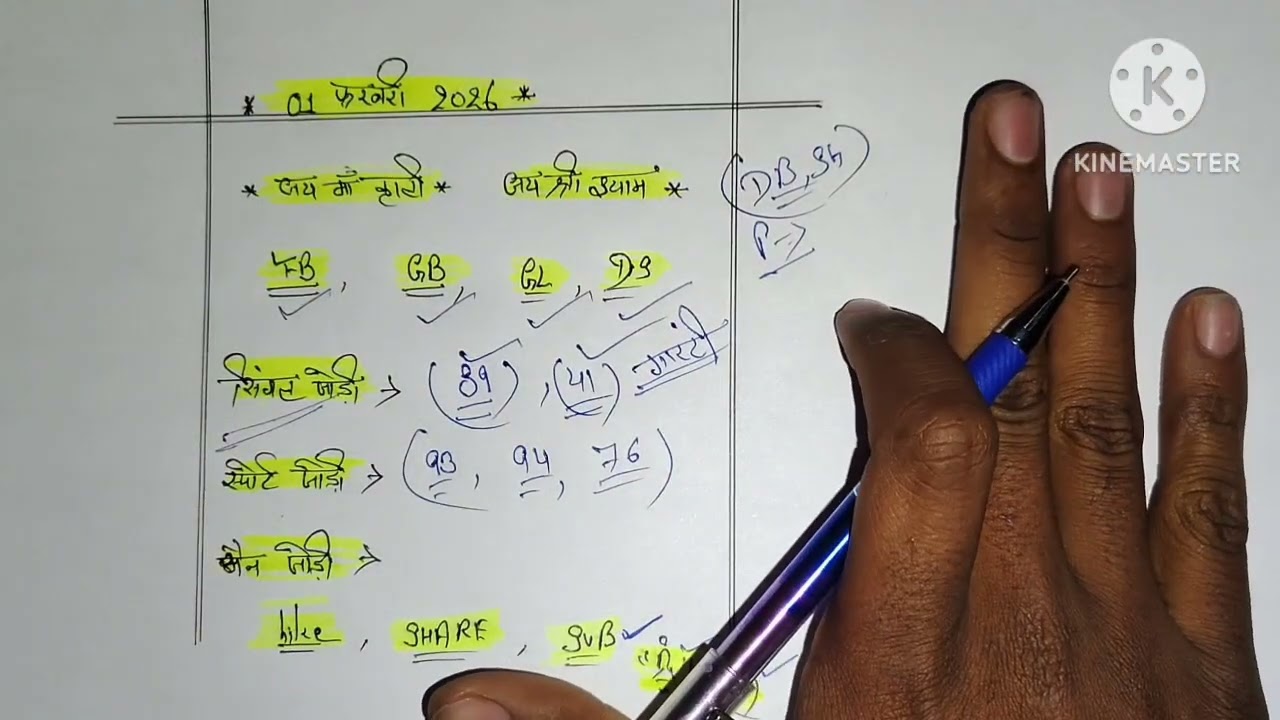 * 01 फरवरी 2026 *
* जय माँ काली * जय श्री श्याम *
(DB, SG)
P->
FB, GB, GL, DS
सिंगल जोड़ी -> (89), (41) गारंटी
स्पोर्ट जोड़ी -> (93, 94, 76)
मेन जोड़ी ->
like, SHARE, SUB
K
KINEMASTER